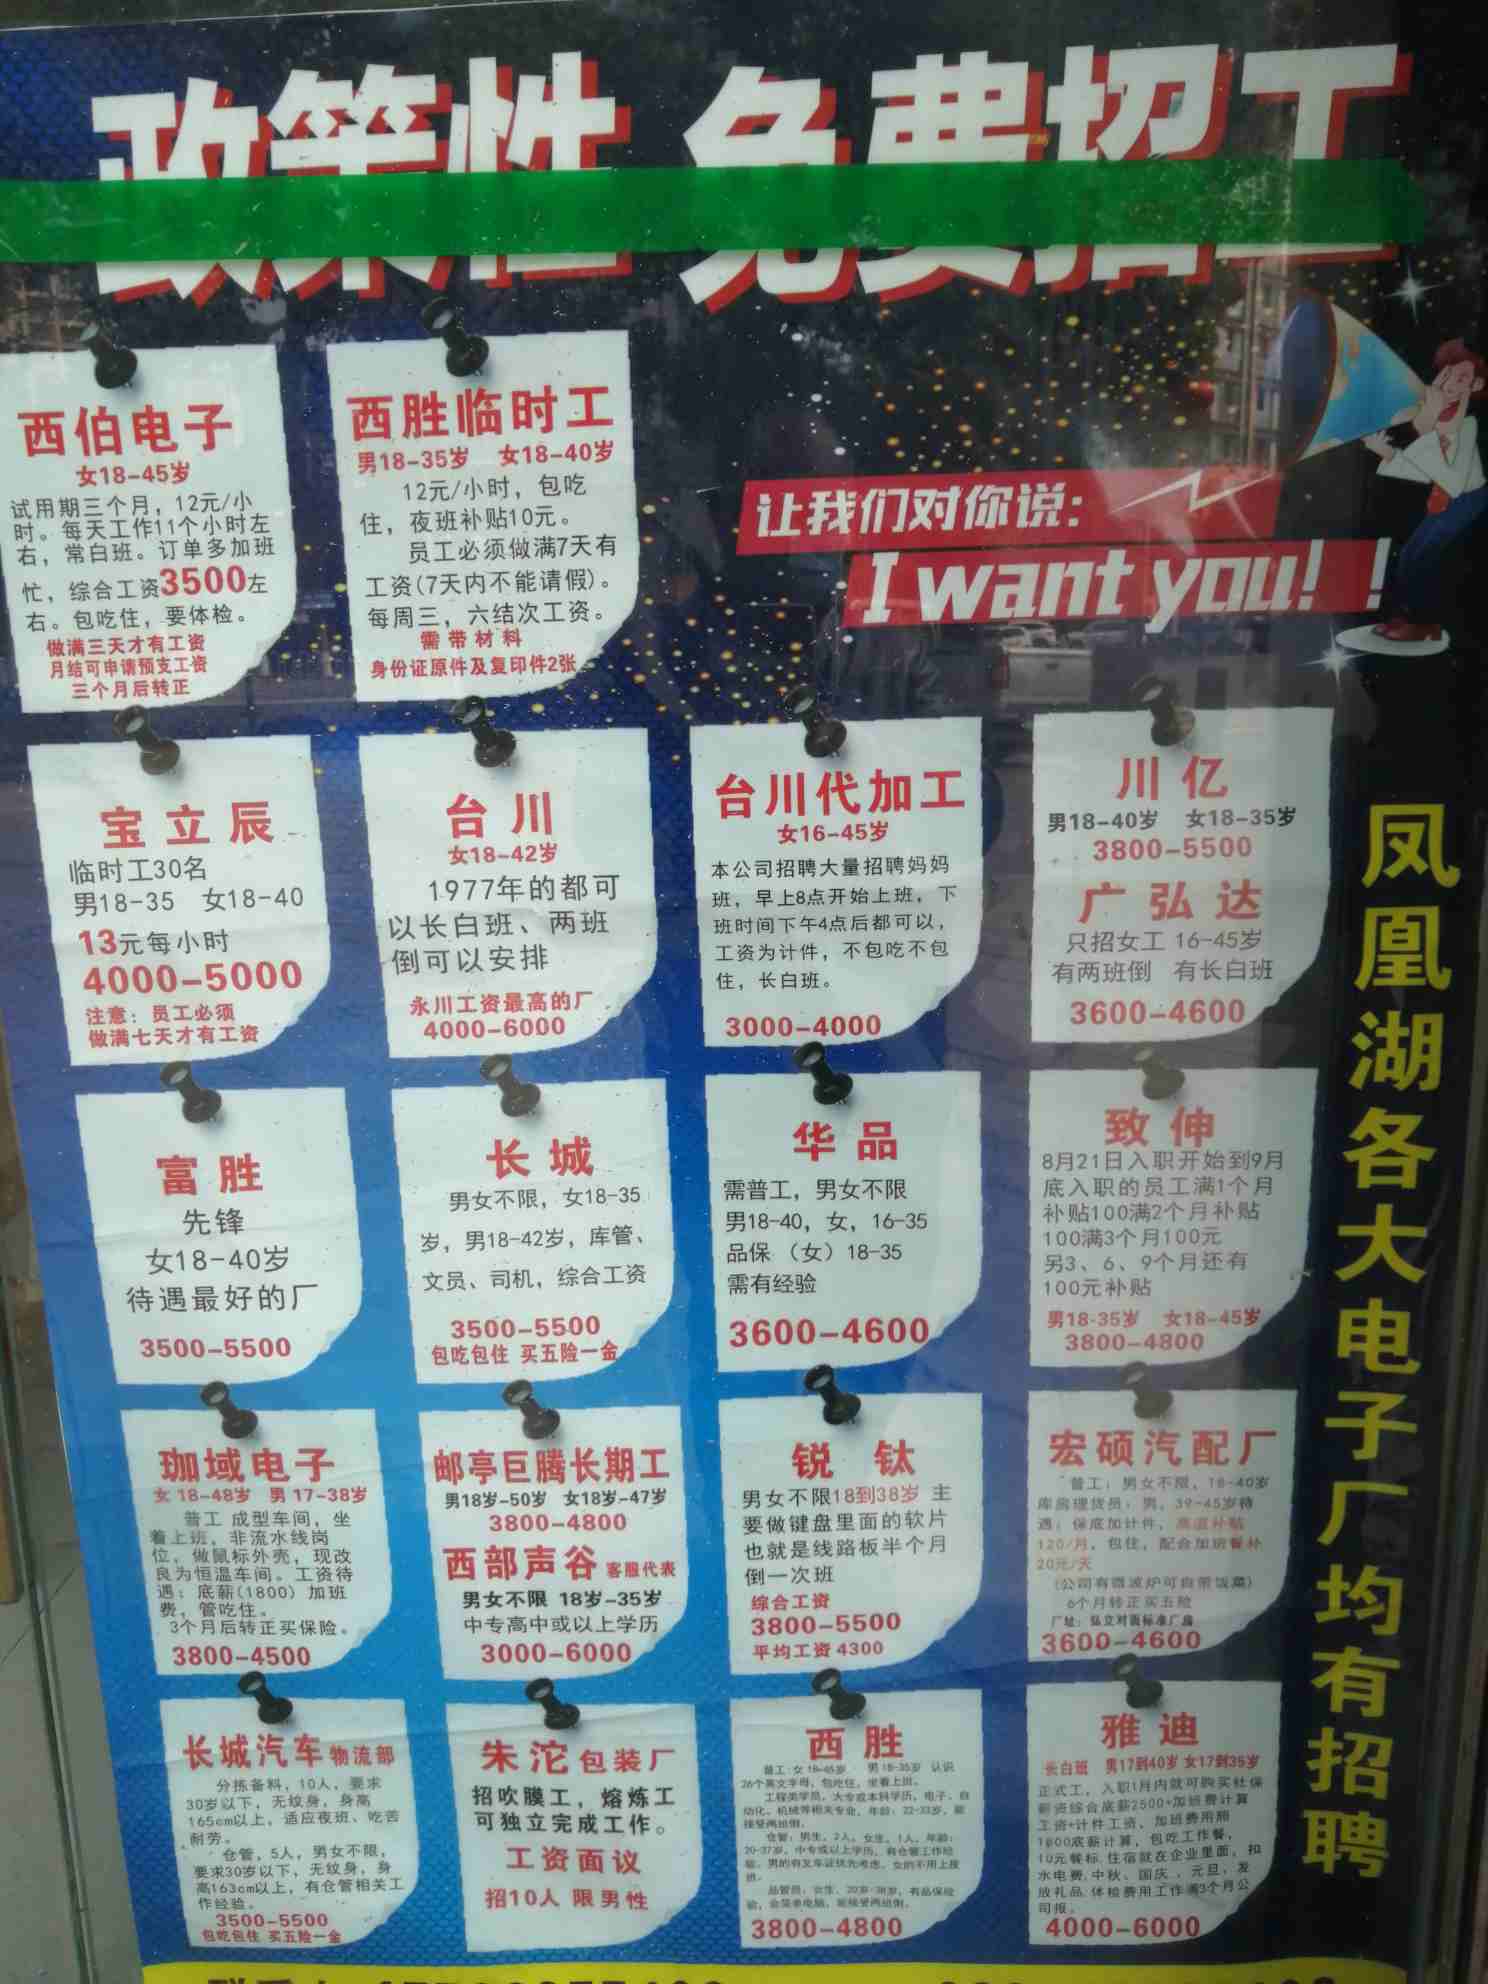 政策性 免费招工
西伯电子
女18-45岁
试用期三个月，12元/小
时。每天工作11个小时左
右，常白班。订单多加班
忙，综合工资3500左
右。包吃住，要体检。
做满三天才有工资
月结可申请预支工资
三个月后转正
西胜临时工
男18-35岁 女18-40岁
12元/小时，包吃
住，夜班补贴10元。
员工必须做满7天有
工资(7天内不能请假)。
每周三，六结次工资。
需带材料
身份证原件及复印件2张
让我们对你说：
I want you！！
宝立辰
临时工30名
男18-35 女18-40
13元每小时
4000-5000
注意：员工必须
做满七天才有工资
台川
女18-42岁
1977年的都可
以长白班、两班
倒可以安排
永川工资最高的厂
4000-6000
台川代加工
女16-45岁
本公司招聘大量招聘妈妈
班，早上8点开始上班，下
班时间下午4点后都可以，
工资为计件，不包吃不包
住，长白班。
3000-4000
川亿
男18-40岁 女18-35岁
3800-5500
广弘达
只招女工 16-45岁
有两班倒 有长白班
3600-4600
富胜
先锋
女18-40岁
待遇最好的厂
3500-5500
长城
男女不限，女18-35
岁，男18-42岁，库管、
文员、司机，综合工资
3500-5500
包吃包住 买五险一金
华品
需普工，男女不限
男18-40，女，16-35
品保（女）18-35
需有经验
3600-4600
致伸
8月21日入职开始到9月
底入职的员工满1个月
补贴100满2个月补贴
100满3个月100元
另3、6、9个月还有
100元补贴
男18-35岁 女18-45岁
3800-4800
珈域电子
女 18-48岁 男 17-38岁
普工 成型车间，坐
着上班，非流水线岗
位，做鼠标外壳，现改
良为恒温车间。工资待
遇：底薪(1800) 加班
费，管吃住。
3个月后转正买保险。
3800-4500
邮亭巨腾长期工
男18岁-50岁 女18岁-47岁
3800-4800
西部声谷 客服代表
男女不限 18岁-35岁
中专高中或以上学历
3000-6000
锐钛
男女不限18到38岁 主
要做键盘里面的软片
也就是线路板半个月
倒一次班
综合工资
3800-5500
平均工资 4300
宏硕汽配厂
普工：男女不限，18-40岁
库房理货员：男，39-45岁待
遇：保底加计件，高温补贴
120/月，包住，配合加班餐补
20元/天
(公司有微波炉可自带饭菜)
6个月转正买五险
厂址：弘立对面标准厂房
3600-4600
长城汽车 物流部
分拣备料，10人，要求
30岁以下，无纹身，身高
165cm以上，适应夜班、吃苦
耐劳。
仓管，5人，男女不限，
要求30岁以下，无纹身，身
高163cm以上，有仓管相关工
作经验。
3500-5500
包吃包住 买五险一金
朱沱包装厂
招吹膜工，熔炼工
可独立完成工作。
工资面议
招10人 限男性
西胜
普工:女 18-45岁 男 18-35岁 认识
26个英文字母，包吃住，坐着上班。
工程类学员，大专或本科学历，电子、自
动化、机械等相关专业，年龄：22-33岁，能
接受两班倒。
仓管：男生，2人，女生，1人，年龄：
20-37岁，中专或以上学历，有仓管工作经
验，男的有叉车证优先考虑，女的不用上夜
班。
品管员，女生，20岁-38岁，有品保经
验，会简单电脑，能接受两班倒。
3800-4800
雅迪
长白班 男17到40岁 女17到35岁
正式工，入职1月内就可购买社保
薪资综合底薪2500+加班费计算
工资+计件工资、加班费用照
1800底薪计算，包吃工作餐，
10元餐标.住宿就在企业里面，扣
水电费.中秋、国庆、元旦，发
放礼品.体检费用工作满3个月公
司报。
4000-6000
凤凰湖各大电子厂均有招聘